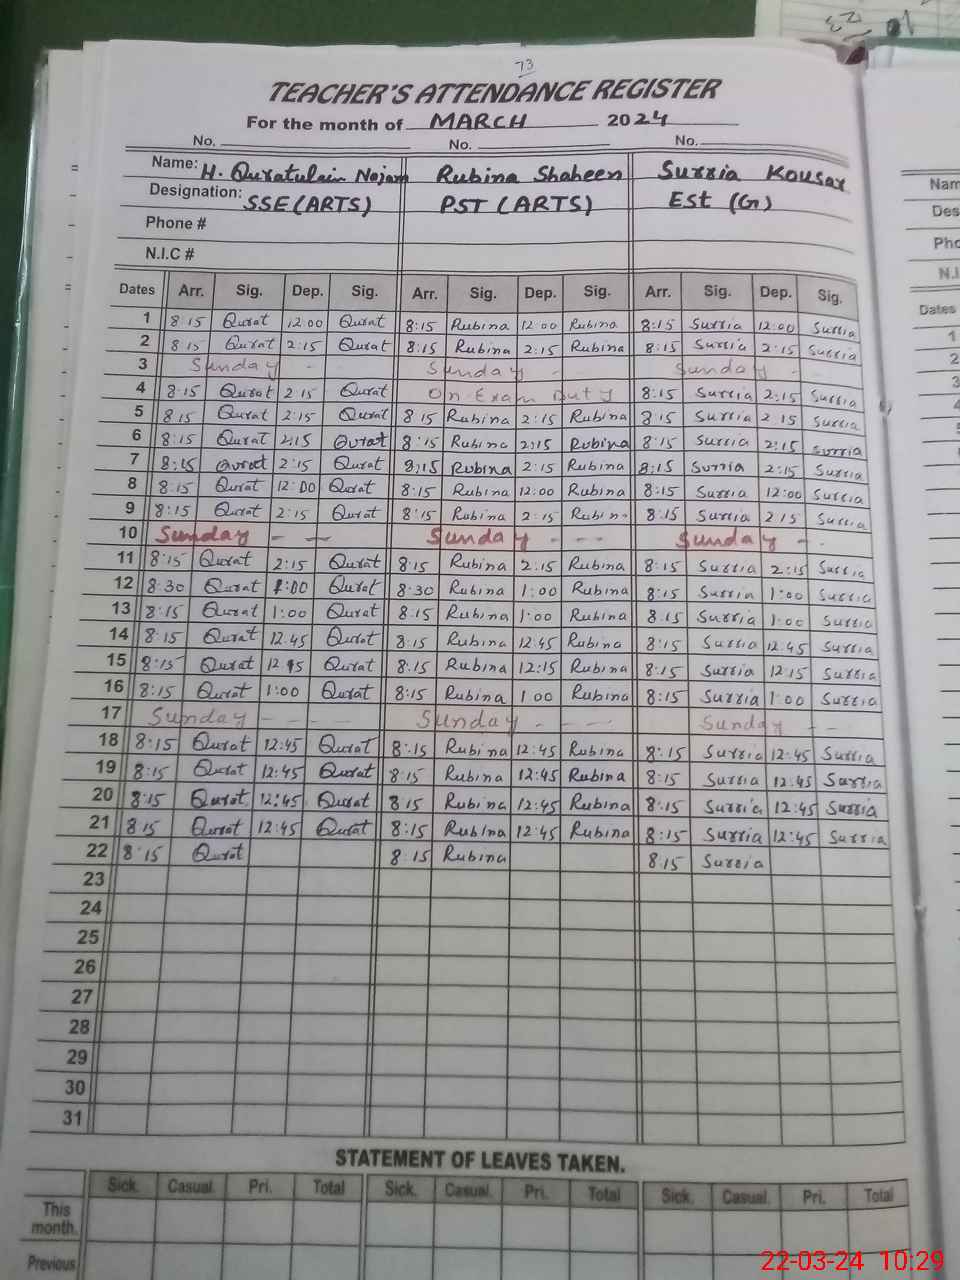 73
TEACHER'S ATTENDANCE REGISTER
For the month of MARCH 2024
No. No. No.
Name: H. Quratulain Najam Rubina Shaheen Surria Kousar
Designation: SSE (ARTS) PST (ARTS) Est (G)
Phone #
N.I.C #
Dates Arr. Sig. Dep. Sig. Arr. Sig. Dep. Sig. Arr. Sig. Dep. Sig.
1 8:15 Qurat 12:00 Qurat 8:15 Rubina 12:00 Rubina 8:15 Surria 12:00 Surria
2 8:15 Qurat 2:15 Qurat 8:15 Rubina 2:15 Rubina 8:15 Surria 2:15 Surria
3 Sunday - - Sunday - - Sunday -
4 8:15 Qurat 2:15 Qurat On Exam Duty 8:15 Surria 2:15 Surria
5 8:15 Qurat 2:15 Qurat 8:15 Rubina 2:15 Rubina 8:15 Surria 2:15 Surria
6 8:15 Qurat 2:15 Qurat 8:15 Rubina 2:15 Rubina 8:15 Surria 2:15 Surria
7 8:15 Qurat 2:15 Qurat 8:15 Rubina 2:15 Rubina 8:15 Surria 2:15 Surria
8 8:15 Qurat 12:00 Qurat 8:15 Rubina 12:00 Rubina 8:15 Surria 12:00 Surria
9 8:15 Qurat 2:15 Qurat 8:15 Rubina 2:15 Rubina 8:15 Surria 2:15 Surria
10 Sunday - - Sunday - - - Sunday -
11 8:15 Qurat 2:15 Qurat 8:15 Rubina 2:15 Rubina 8:15 Surria 2:15 Surria
12 8:30 Qurat 1:00 Qurat 8:30 Rubina 1:00 Rubina 8:15 Surria 1:00 Surria
13 8:15 Qurat 1:00 Qurat 8:15 Rubina 1:00 Rubina 8:15 Surria 1:00 Surria
14 8:15 Qurat 12:45 Qurat 8:15 Rubina 12:45 Rubina 8:15 Surria 12:45 Surria
15 8:15 Qurat Qurat 8:15 Rubina 12:15 Rubina 8:15 Surria 12:15 Surria
16 8:15 Qurat 1:00 Qurat 8:15 Rubina 1:00 Rubina 8:15 Surria 1:00 Surria
17 Sunday - - - Sunday - - - Sunday - -
18 8:15 Qurat 12:45 Qurat 8:15 Rubina 12:45 Rubina 8:15 Surria 12:45 Surria
19 8:15 Qurat 12:45 Qurat 8:15 Rubina 12:45 Rubina 8:15 Surria 12:45 Surria
20 8:15 Qurat 12:45 Qurat 8:15 Rubina 12:45 Rubina 8:15 Surria 12:45 Surria
21 8:15 Qurat 12:45 Qurat 8:15 Rubina 12:45 Rubina 8:15 Surria 12:45 Surria
22 8:15 Qurat 8:15 Rubina 8:15 Surria
23
24
25
26
27
28
29
30
31
STATEMENT OF LEAVES TAKEN.
Sick. Casual. Pri. Total Sick. Casual. Pri. Total Sick. Casual. Pri. Total
This
month.
Previous
22-03-24 10:29
Nam
Des
Pho
N.I
Dates
1
2
3
4